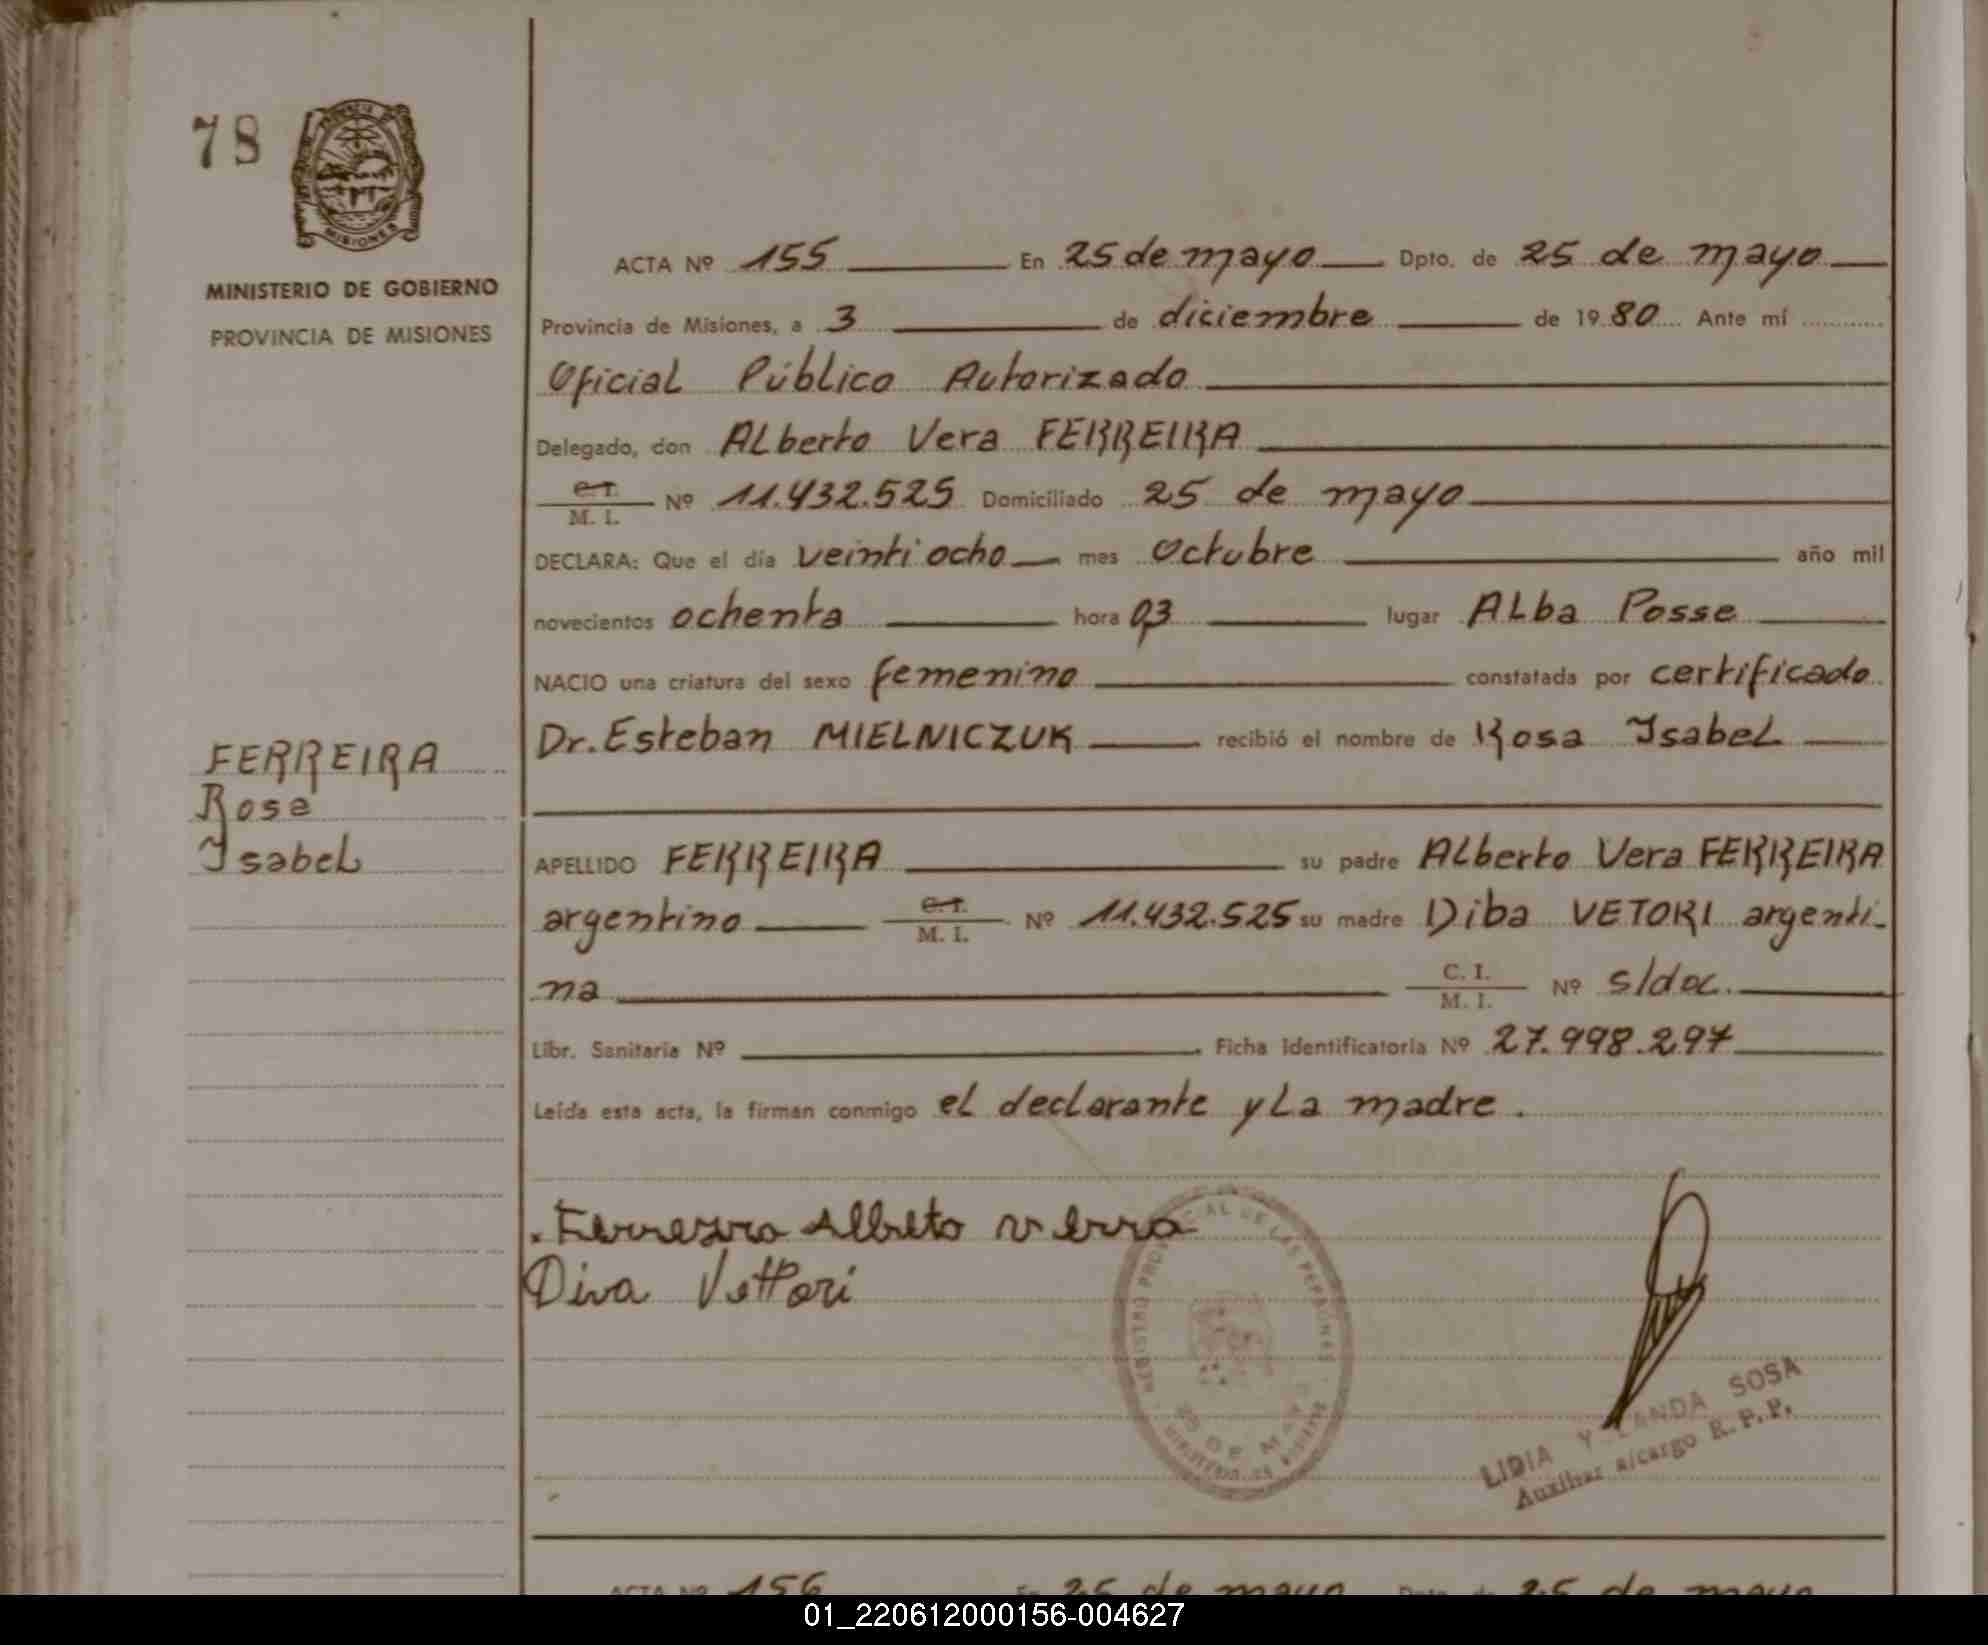 78
MISIONES
MINISTERIO DE GOBIERNO
PROVINCIA DE MISIONES
ACTA Nº 155 En 25 de mayo Dpto. de 25 de mayo
Provincia de Misiones, a 3 de diciembre de 19 80 Ante mí
Oficial Público Autorizado
Delegado, don Alberto Vera FERREIRA
C.I.
M. I. Nº 11.432.525 Domiciliado 25 de mayo
DECLARA: Que el día veinti ocho mes Octubre año mil
novecientos ochenta hora 03 lugar Alba Posse
NACIO una criatura del sexo femenino constatada por certificado
Dr. Esteban MIELNICZUK recibió el nombre de Rosa Isabel
FERREIRA
Rosa
Isabel
APELLIDO FERREIRA su padre Alberto Vera FERREIRA
argentino C.I.
M. I. Nº 11.432.525 su madre Diba VETORI argenti-
na C. I.
M. I. Nº s/doc.
Libr. Sanitaria Nº Ficha Identificatoria Nº 27.998.297
Leída esta acta, la firman conmigo el declarante y la madre.
Ferreira Alberto verra
Diva Vettori
REGISTRO PROVINCIAL DE LAS PERSONAS
25 DE MAYO
LIDIA YOLANDA SOSA
Auxiliar a/cargo R. P. P.
ACTA Nº 156 En 25 de mayo Dpto. de 25 de mayo
01_220612000156-004627